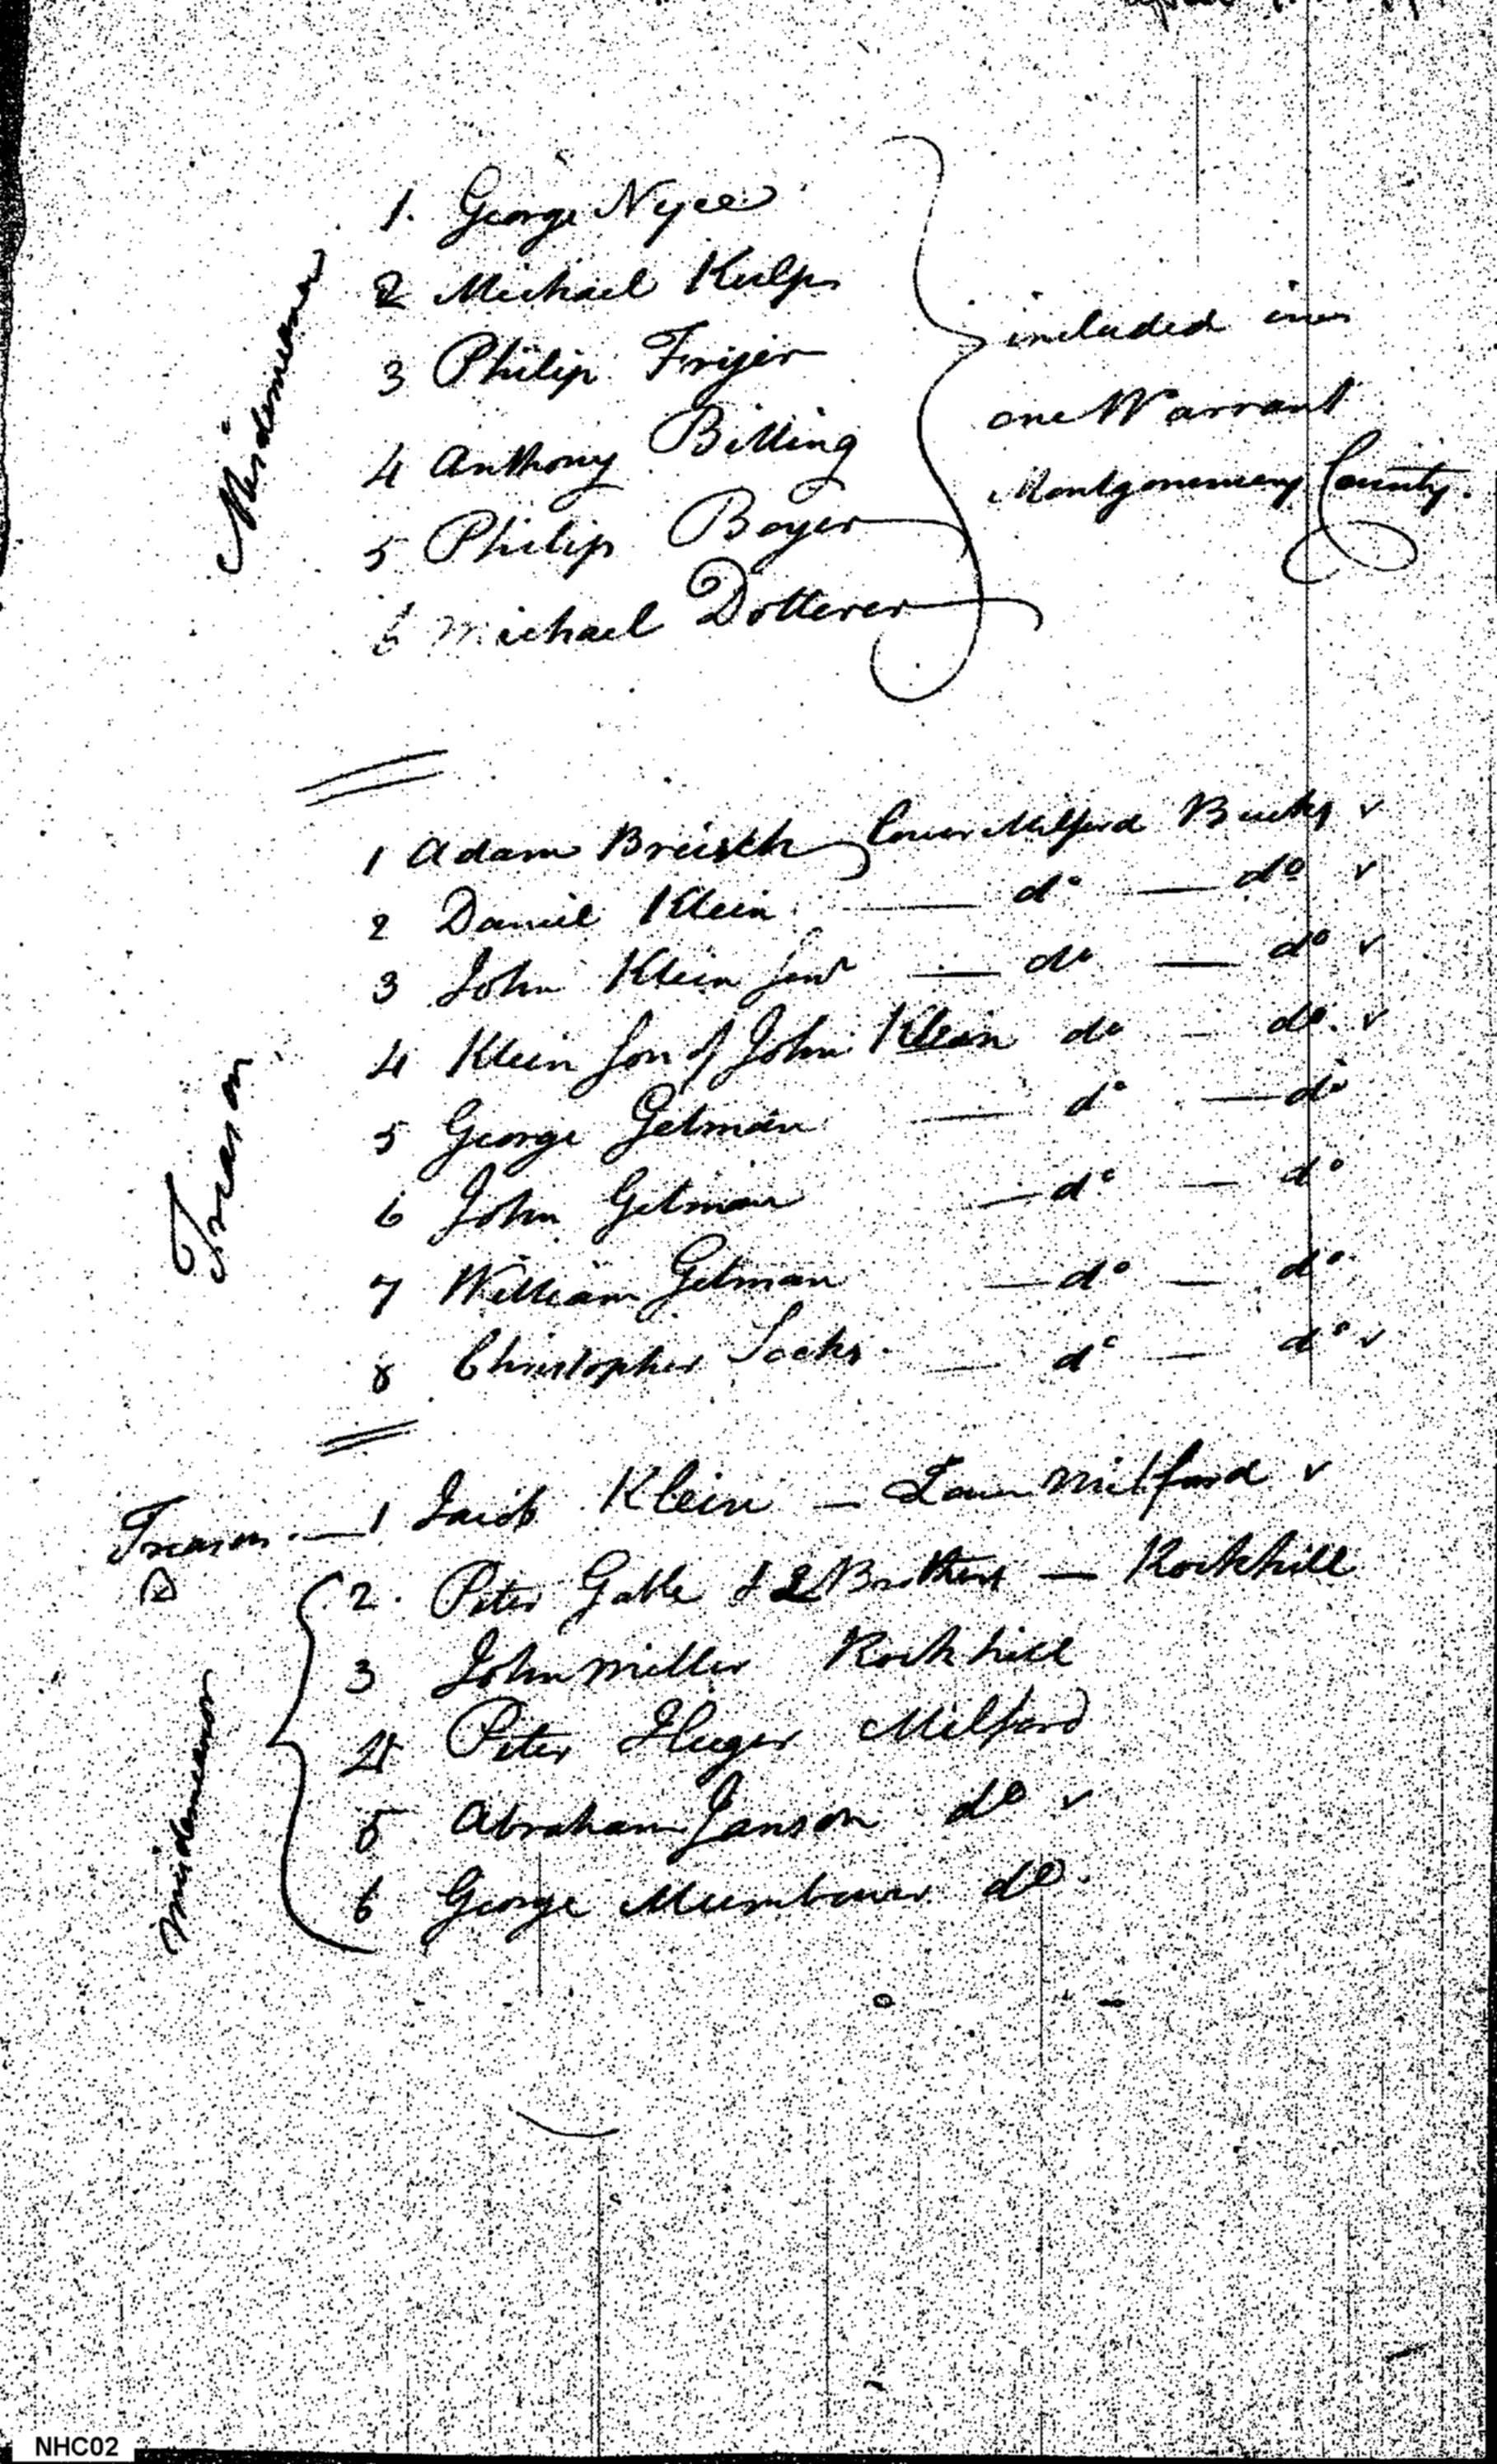 Misdemeanor
1. George Nyce
2 Michael Kulp
3 Philip Frijer
4 Anthony Bitting
5 Philip Boyer
6 Michael Dotterer
included in
one Warrant
Montgomery County.
Treason
1 Adam Breisch Lower Milford Bucks v
2 Daniel Klein — do — do v
3 John Klein Senr — do — do v
4 Klein Son of John Klein do — do. v
5 George Getman — do — do
6 John Getman — do — do
7 William Getman — do — do
8 Christopher Socks — do — do v
Treason. — 1 Jacob Klein — Lower Milford v
Misdemeanor
2. Peter Gable & 2 Brothers — Rockhill
3 John Miller Rockhill
4 Peter Huger Milford
5 Abraham Janson do v
6 George Mumbower do.
NHC02